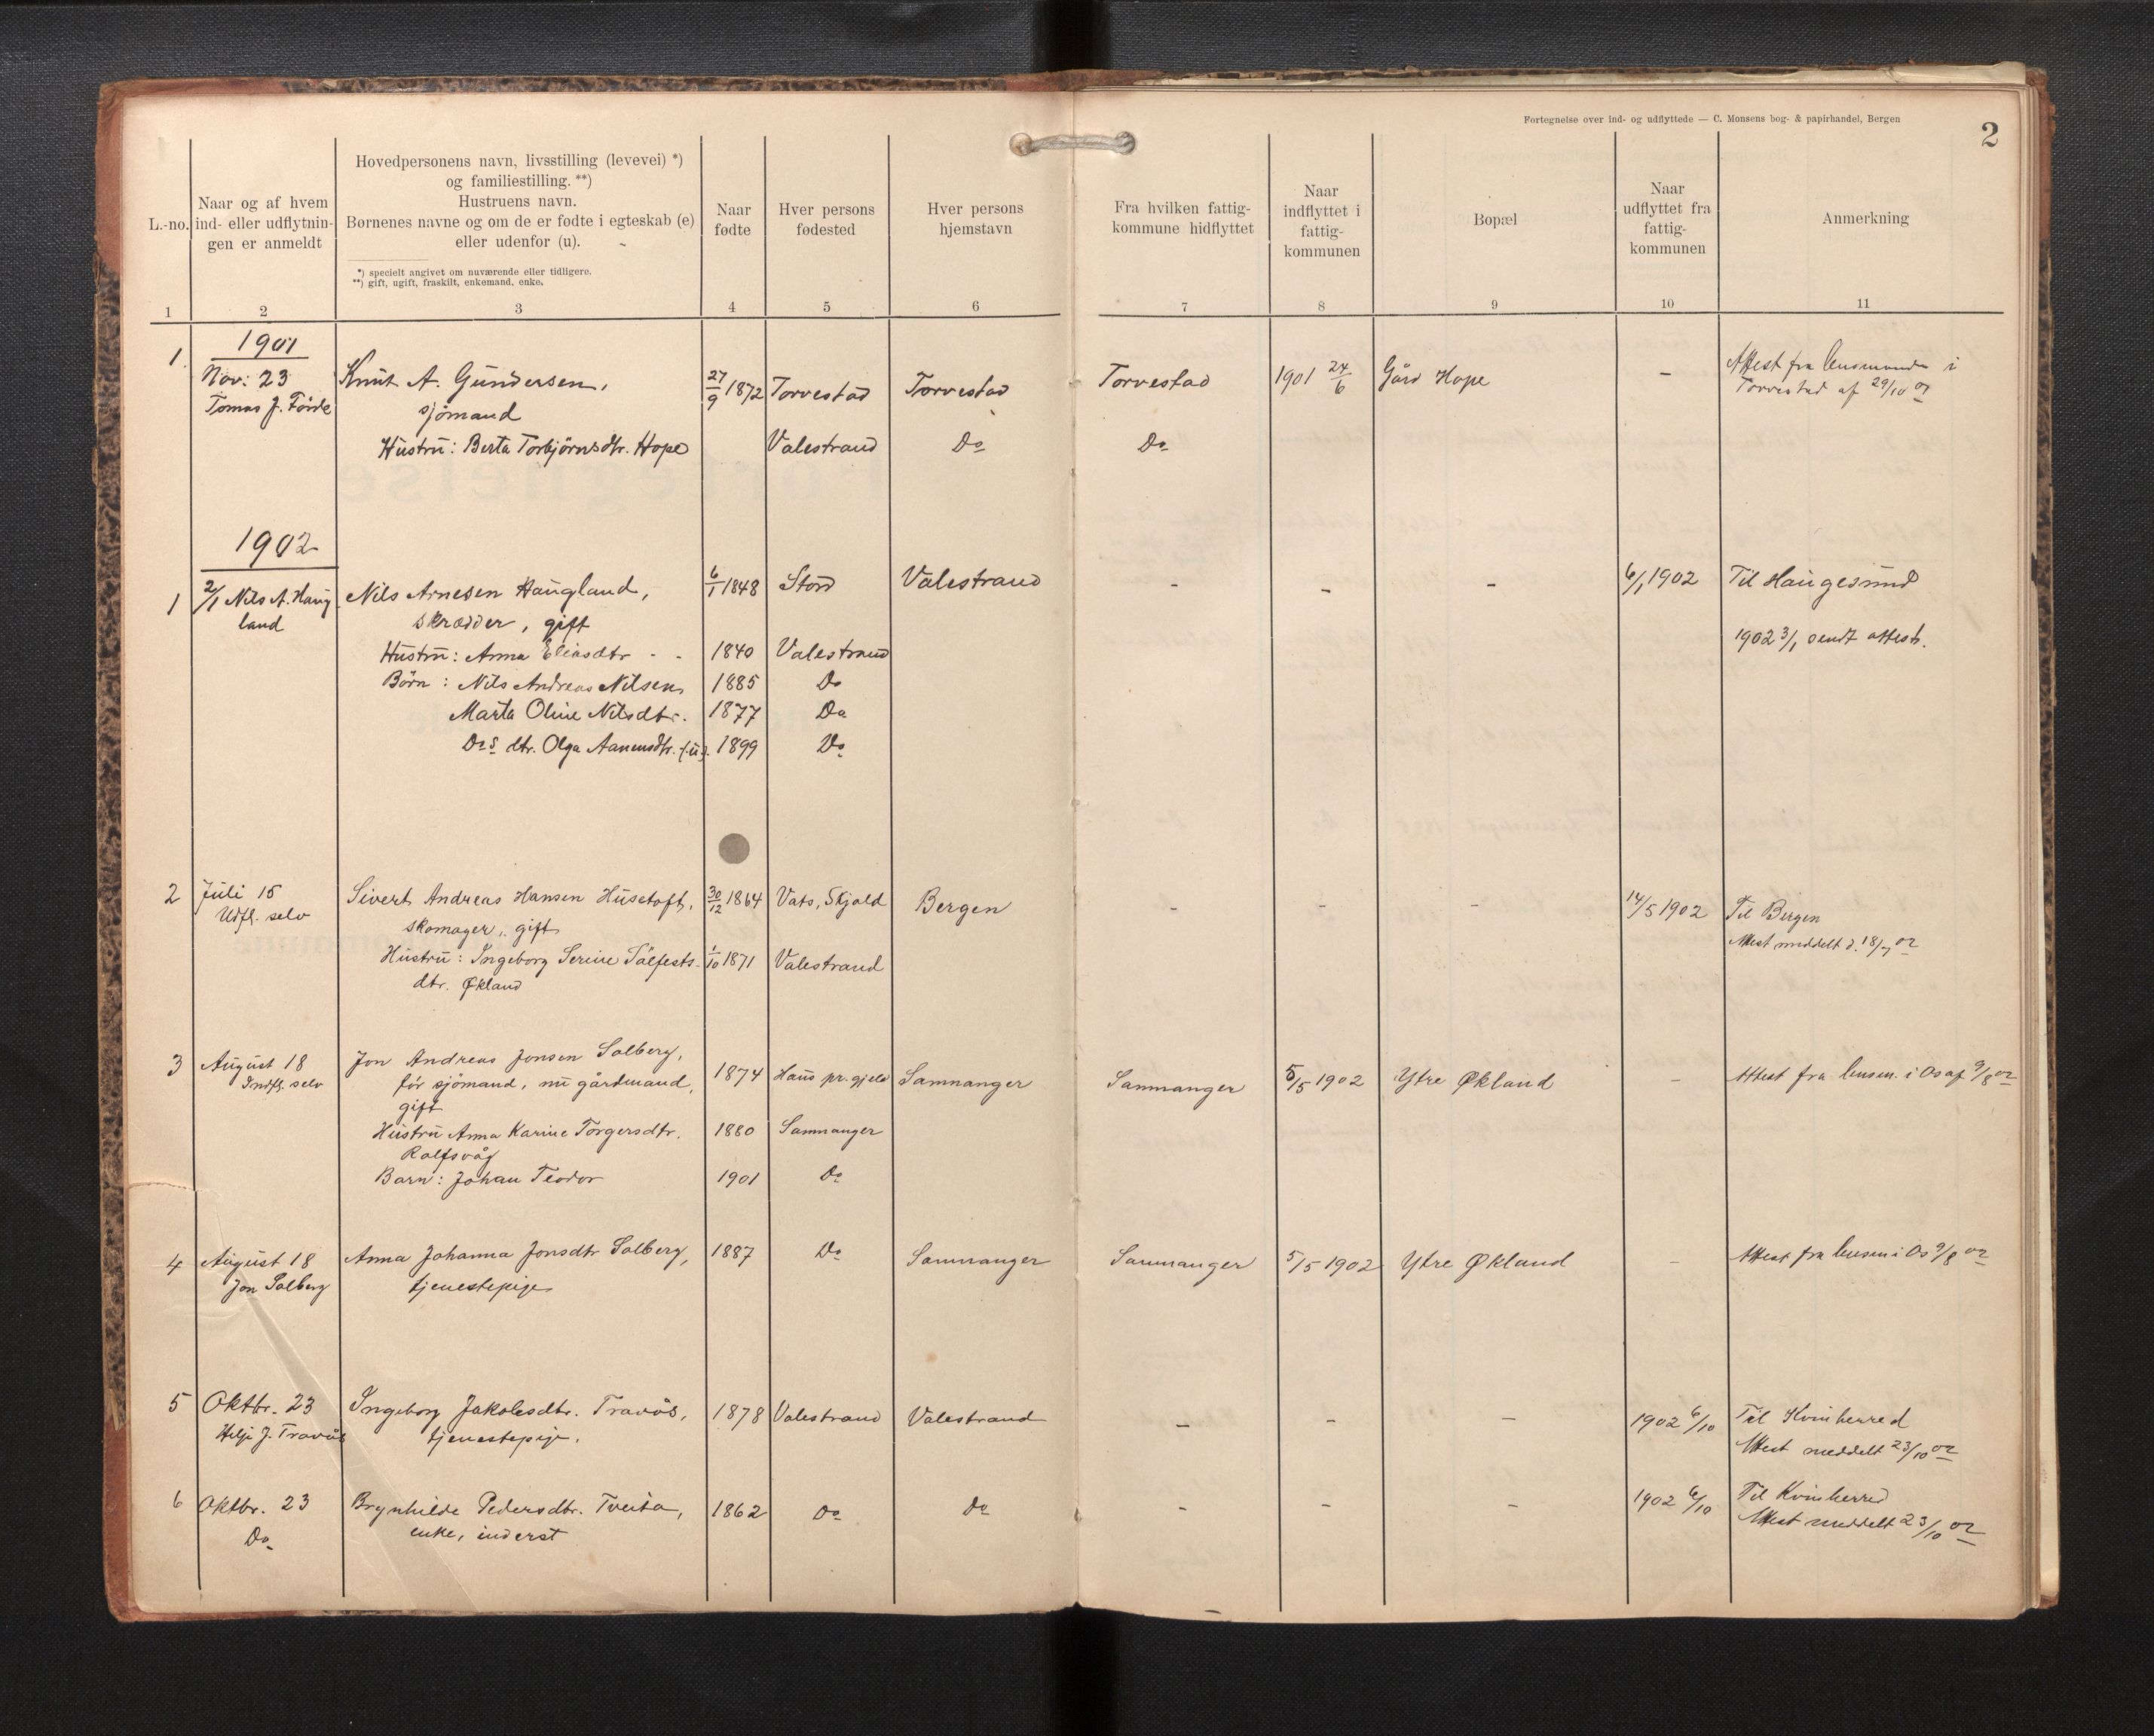 Fortegnelse over ind- og udflyttede — C. Monsens bog- & papirhandel, Bergen
2
L.-no.
Naar og af hvem
ind- eller udflytnin-
gen er anmeldt
Hovedpersonens navn, livsstilling (levevei) *)
og familiestilling. **)
Hustruens navn.
Børnenes navne og om de er fødte i egteskab (e)
eller udenfor (u).
*) specielt angivet om nuværende eller tidligere.
**) gift, ugift, fraskilt, enkemand, enke.
Naar
fødte
Hver persons
fødested
Hver persons
hjemstavn
Fra hvilken fattig-
kommune hidflyttet
Naar
indflyttet i
fattig-
kommunen
Bopæl
Naar
udflyttet fra
fattig-
kommunen
Anmerkning
1 2 3 4 5 6 7 8 9 10 11
1901
1 Nov: 23 Knut A. Gundersen, 27/9 1872 Torvestad Torvestad Torvestad 1901 24/6 Gård Hope - Attest fra lensmanden i
Tomas J. Förde sjömand Torvestad af 29/10 01
Hustru: Berta Torbjörnsdtr. Hope Valestrand Do Do
1902
1 2/1 Nils A. Haug- Nils Arnesen Haugland, 6/1 1848 Stord Valestrand - - - 6/1 1902 Til Haugesund
land skrædder, gift 1902 3/1 sendt attest.
Hustru: Anna Eliasdtr - - 1840 Valestrand
Børn: Nils Andreas Nilsen 1885 Do
Marta Oline Nilsdtr. 1877 Do
Dos dtr. Olga Aanensdtr. (u). 1899 Do
2 Juli 15 Sivert Andreas Hansen Husetoft, 30/12 1864 Vats, Skjold Bergen - - - 14/5 1902 Til Bergen
Udfl. selv skomager, gift Attest meddelt d. 18/7 02
Hustru: Ingeborg Serine Sälfests- 1/10 1871 Valestrand
dtr. Økland
3 August 18 Jon Andreas Jonsen Solberg, 1874 Haus pr.gjeld Samnanger Samnanger 5/5 1902 Ytre Økland - Attest fra lensm. i Os af 9/8 02
Indfl. selv för sjömand, nu gårdmand,
gift
Hustru Anna Karine Torgersdtr. 1880 Samnanger
Rolfsvåg
Barn: Johan Teodor 1901 Do
4 August 18 Anna Johanna Jonsdtr Solberg, 1887 Do Samnanger Samnanger 5/5 1902 Ytre Økland - Attest fra lensm i Os 9/8 02
Jon Solberg tjenestepige
5 Oktbr. 23 Ingeborg Jakobsdtr. Travös, 1878 Valestrand Valestrand - - - 1902 6/10 Til Kvinherred
Helje J. Travös tjenestepige. Attest meddelt 23/10 02
6 Oktbr. 23 Brynhilde Pedersdtr. Tveita, 1862 Do Do - - - 1902 6/10 Til Kvinherred
Do enke, inderst Attest meddelt 23/10 02